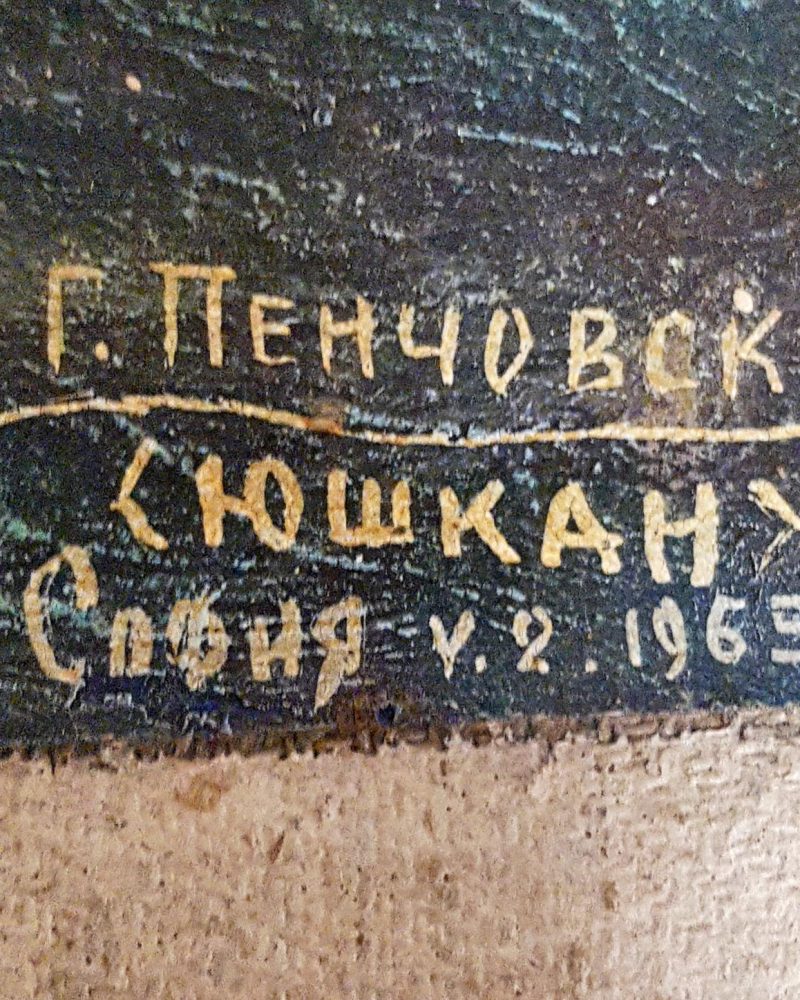 Г. ПЕНЧОВСК
<ЮШКАН>
София V. 2. 1963